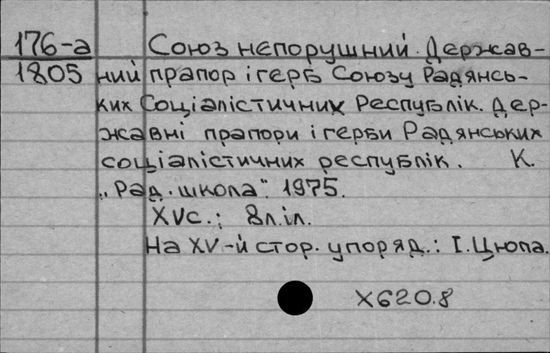 176-а Союз непорушний. Держав-
1805 ний прапор і герб Союзу Радянсь-
ких Соціалістичних Республік. Дер-
жавні прапори і герби Радянських
соціалістичних республік. К.
„Рад. школа“. 1975.
XVс.; 8л.іл.
На XV-й стор. упоряд.: І.Цюпа.
Х620.8